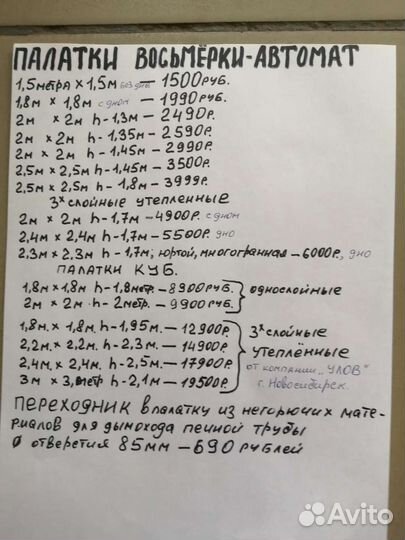 ПАЛАТКИ ВОСЬМЁРКИ-АВТОМАТ
1,5метра × 1,5м без дна — 1500руб.
1,8м × 1,8м с дном — 1990руб.
2м × 2м h-1,3м — 2490р.
2м × 2м h-1,35м — 2590р.
2м × 2м h-1,45м — 2990р.
2,5м × 2,5м h-1,45м — 3500р.
2,5м × 2,5м h-1,8м — 3999р.
3х слойные утепленные
2м × 2м h-1,7м — 4900р. с дном
2,4м × 2,4м h-1,7м — 5500р. дно
2,3м × 2,3м h-1,7м; юртой, многогранная — 6000р., дно
ПАЛАТКИ КУБ.
1,8м × 1,8м h-1,8метр — 8900руб.
2м × 2м h-2метр. — 9900руб.
однослойные
1,8м. × 1,8м. h-1,95м. — 12900р.
2,2м. × 2,2м. h-2,3м. — 14900р.
2,4м. × 2,4м. h-2,5м. — 17900р.
3м × 3метр h-2,1м — 19500р.
3х слойные
утеплённые
от компании „УЛОВ"
г. Новосибирск.
Переходник в палатку из негорючих мате-
риалов для дымохода печной трубы
ø отверстия 85мм — 690 рублей
Avito